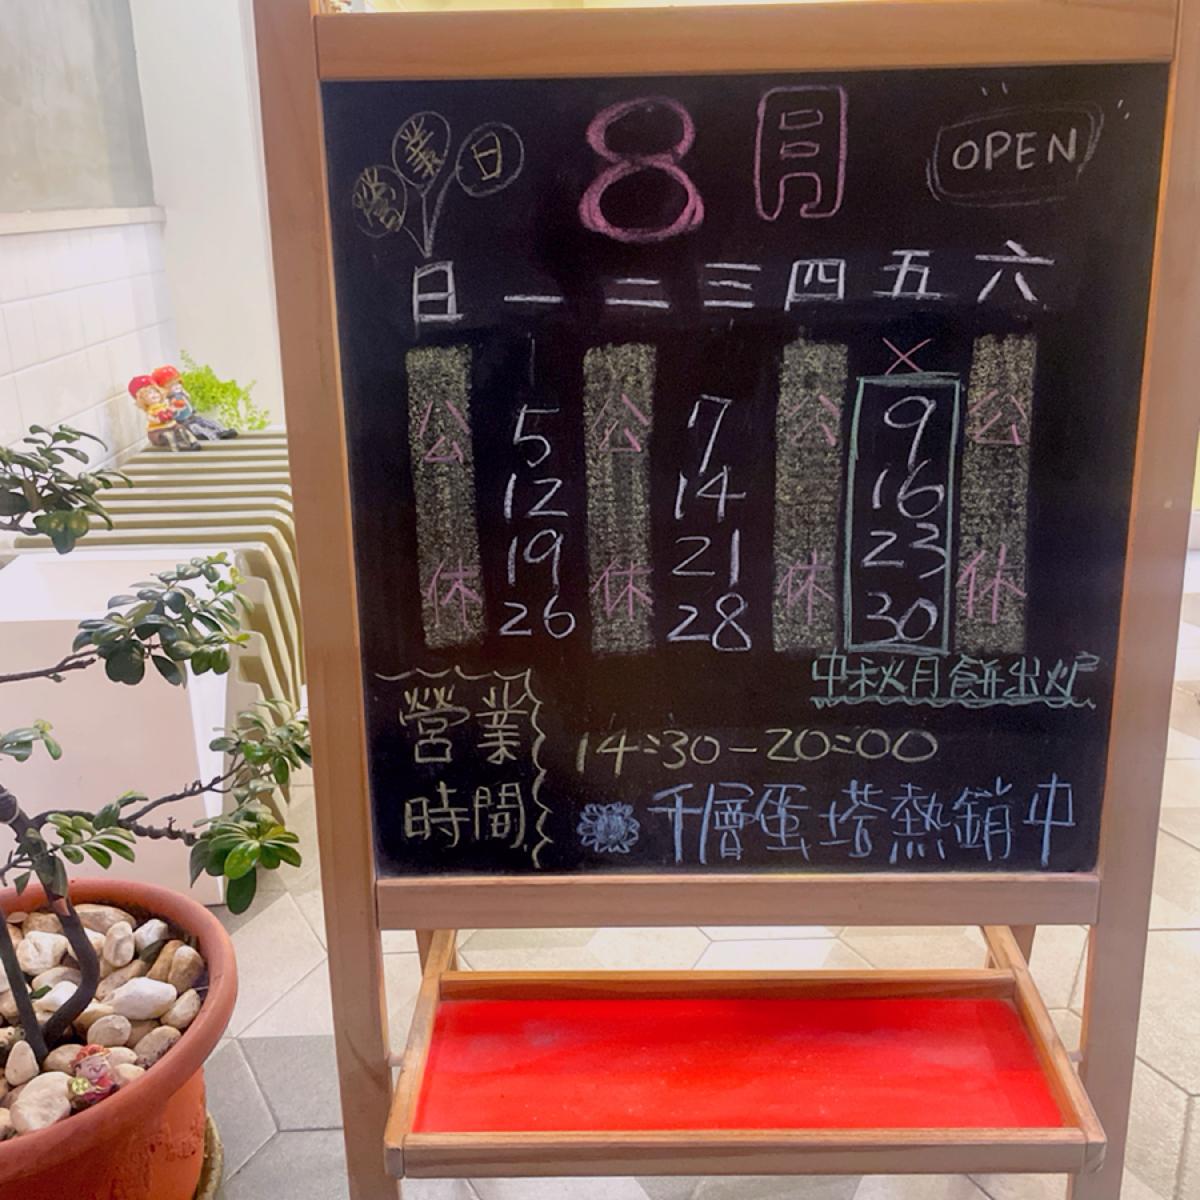 營業日 8月 OPEN
日 一 二 三 四 五 六
1 ×
公 5 公 7 公 9 公
12 14 16
休 19 休 21 休 23 休
26 28 30
中秋月餅出炉
營業 14:30-20:00
時間 千層蛋塔熱銷中